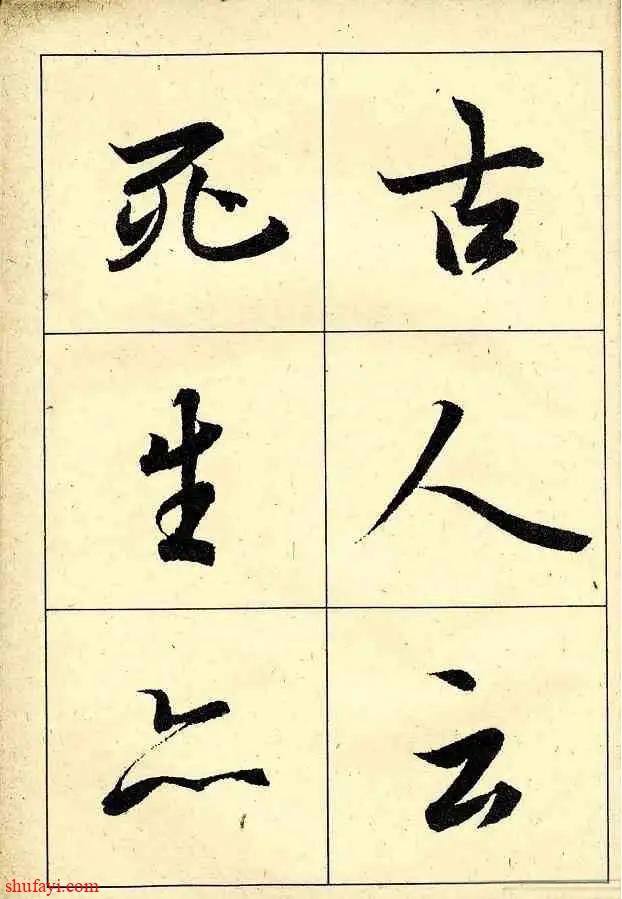 古人云
死生亦
shufayi.com